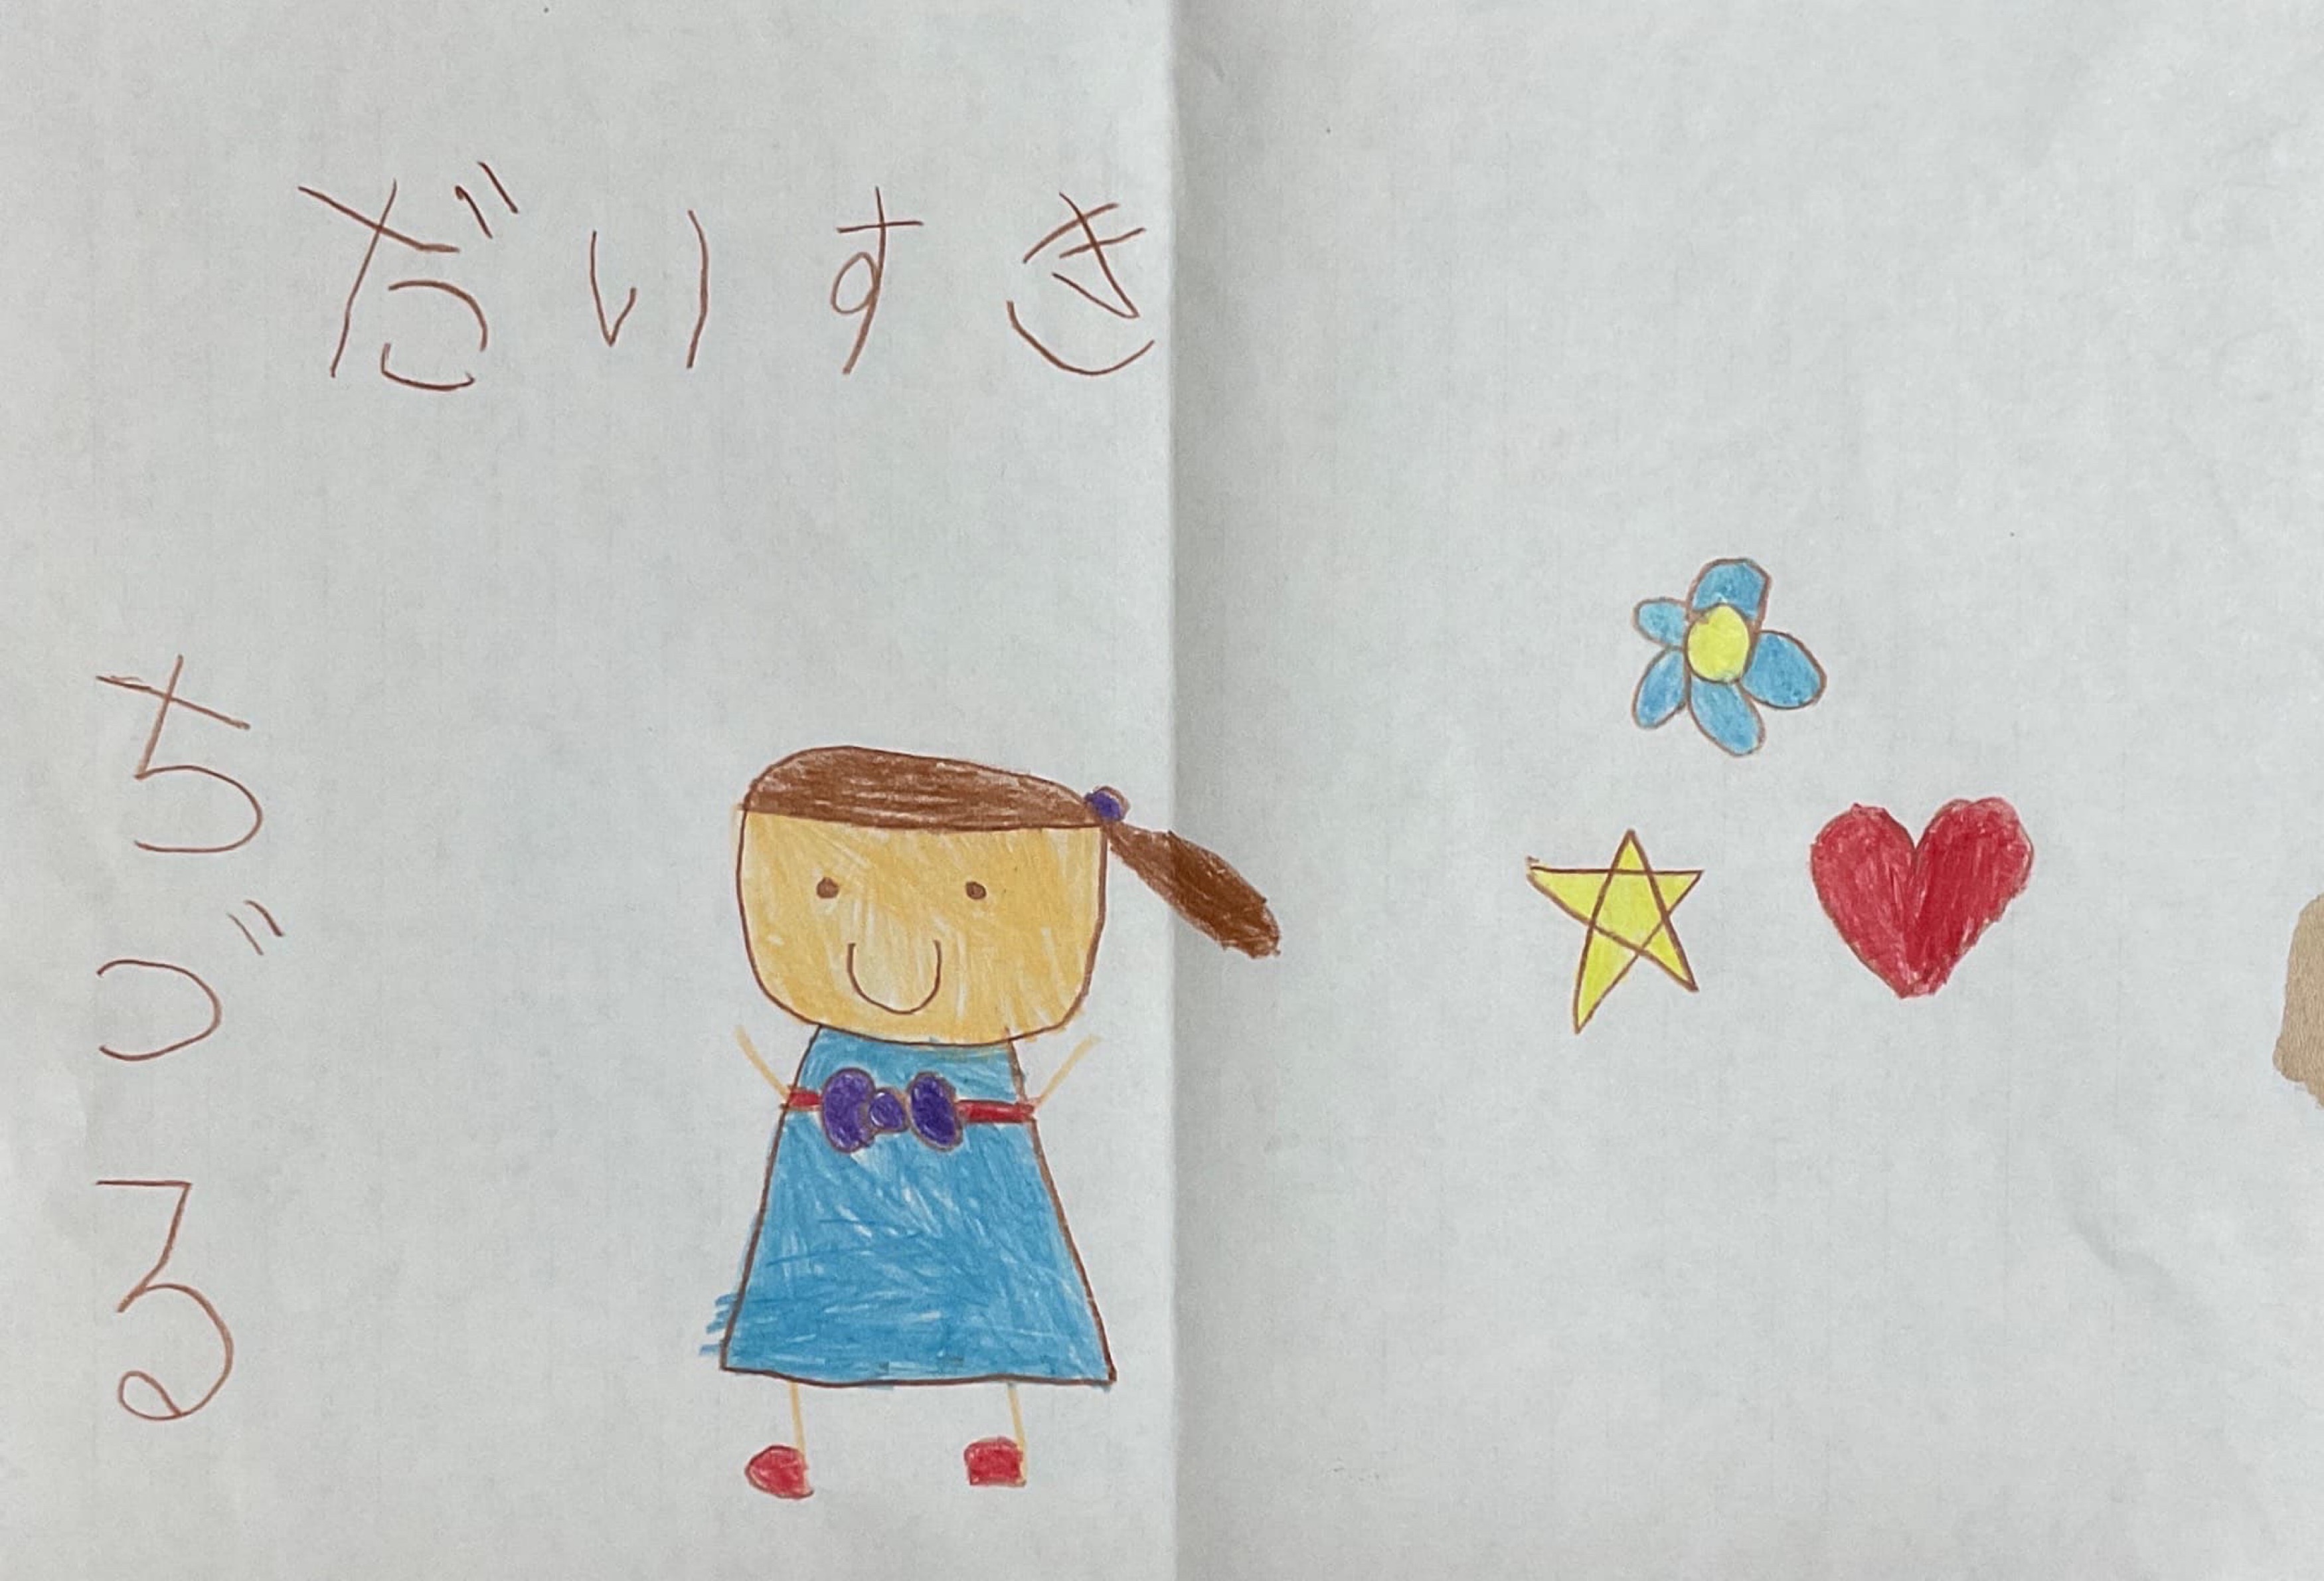 だいすき
ちづる